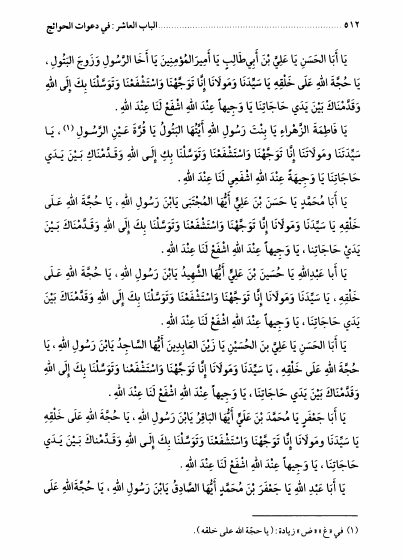 ٥١٢ ........................ الباب العاشر : في دعوات الحوائج
يَا أَبَا الحَسَنِ يَا عَلِيَّ بْنَ أَبِي طَالِبٍ يَا أَمِيرَ المُؤْمِنِينَ يَا أَخَا الرَّسُولِ وَزَوجَ البَتُولِ ،
يَا حُجَّةَ اللهِ عَلَى خَلْقِهِ يَا سَيِّدَنَا وَمَولَانَا إِنَّا تَوَجَّهْنَا وَاسْتَشْفَعْنَا وَتَوَسَّلْنَا بِكَ إِلَى اللهِ
وَقَدَّمْنَاكَ بَيْنَ يَدَي حَاجَاتِنَا يَا وَجِيهاً عِنْدَ اللهِ اشْفَعْ لَنَا عِنْدَ اللهِ.
يَا فَاطِمَةَ الزَّهْراءِ يَا بِنْتَ رَسُولِ اللهِ أَيَّتُهَا البَتُولُ يَا قُرَّةَ عَيْنِ الرَّسُولِ (١) ، يَـا
سَيِّدَتَنَا ومَولَاتَنَا إِنَّا تَوَجَّهْنَا وَاسْتَشْفَعْنَا وَتَوَسَّلْنَا بِكِ إِلَـى اللهِ وَقَدَّمْنَاكِ بَيْـنَ يَـدَي
حَاجَاتِنَا يَا وَجِيهَةً عِنْدَ اللهِ اشْفَعِي لَنَا عِنْدَ اللهِ.
يَا أَبَا مُحَمَّدٍ يَا حَسَنَ بْنَ عَلِيٍّ أَيُّهَا المُجْتَبَى يَابْنَ رَسُولِ اللهِ ، يَا حُجَّةَ اللهِ عَلَـى
خَلْقِهِ يَا سَيِّدَنَا وَمَولَانَا إِنَّا تَوَجَّهْنَا وَاسْتَشْفَعْنَا وَتَوَسَّلْنَا بِكَ إِلَى اللهِ وَقَدَّمْنَاكَ بَيْـنَ
يَدَيْ حَاجَاتِنا ، يَا وَجِيهاً عِنْدَ اللهِ اشْفَعْ لَنَا عِنْدَ اللهِ .
يَا أَبَا عَبْدِاللهِ يَا حُسَيْنَ بْنَ عَلِيٍّ أَيُّهَا الشَّهِيدُ يَابْنَ رَسُولِ اللهِ ، يَا حُجَّةَ اللهِ عَلَـى
خَلْقِهِ ، يَا سَيِّدَنَا وَمَولَانَا إِنَّا تَوَجَّهْنَا وَاسْتَشْفَعْنَا وَتَوَسَّلْنَا بِكَ إِلَى اللهِ وَقَدَّمْنَاكَ بَيْنَ
يَدَي حَاجَاتِنَا ، يَا وَجِيهاً عِنْدَ اللهِ اشْفَعْ لَنَا عِنْدَ اللهِ .
يَا أَبَا الحَسَنِ يَا عَلِيَّ بنَ الحُسَيْنِ يَا زَيْنَ العَابِدِينَ أَيُّهَا السَّاجِدُ يَابْنَ رَسُولِ اللهِ ، يَا
حُجَّةَ اللهِ عَلَى خَلْقِهِ ، يَا سَيِّدَنَا وَمَولَانَا إِنَّا تَوَجَّهْنَا وَاسْتَشْفَعْنا وَتَوَسَّلْنَا بِكَ إِلَى اللهِ
وَقَدَّمْنَاكَ بَيْنَ يَدَي حَاجَاتِنَا ، يَا وَجِيهاً عِنْدَ اللهِ اشْفَعْ لَنَا عِنْدَ اللهِ .
يَا أَبَا جَعْفَرٍ يَا مُحَمَّدَ بْنَ عَلِيٍّ أَيُّهَا البَاقِرُ يَابْنَ رَسُولِ اللهِ ، يَا حُجَّةَ اللهِ عَلَى خَلْقِهِ
يَا سَيِّدَنَا ومَولَانَا إِنَّا تَوَجَّهْنَا وَاسْتَشْفَعْنَا وَتَوَسَّلْنَا بِكَ إِلَـى اللهِ وَقَدَّمْنَاكَ بَيْـنَ يَـدَي
حَاجَاتِنَا ، يَا وَجِيهاً عِنْدَ اللهِ اشْفَعْ لَنَا عِنْدَ اللهِ .
يَا أَبَا عَبْدِ اللهِ يَا جَعْفَرَ بْنَ مُحَمَّدٍ أَيُّهَا الصَّادِقُ يَابْنَ رَسُولِ اللهِ ، يَا حُجَّةَاللهِ عَلَى
(١) في «غ» «ض» زيادة : (يا حجّة الله على خلقه).